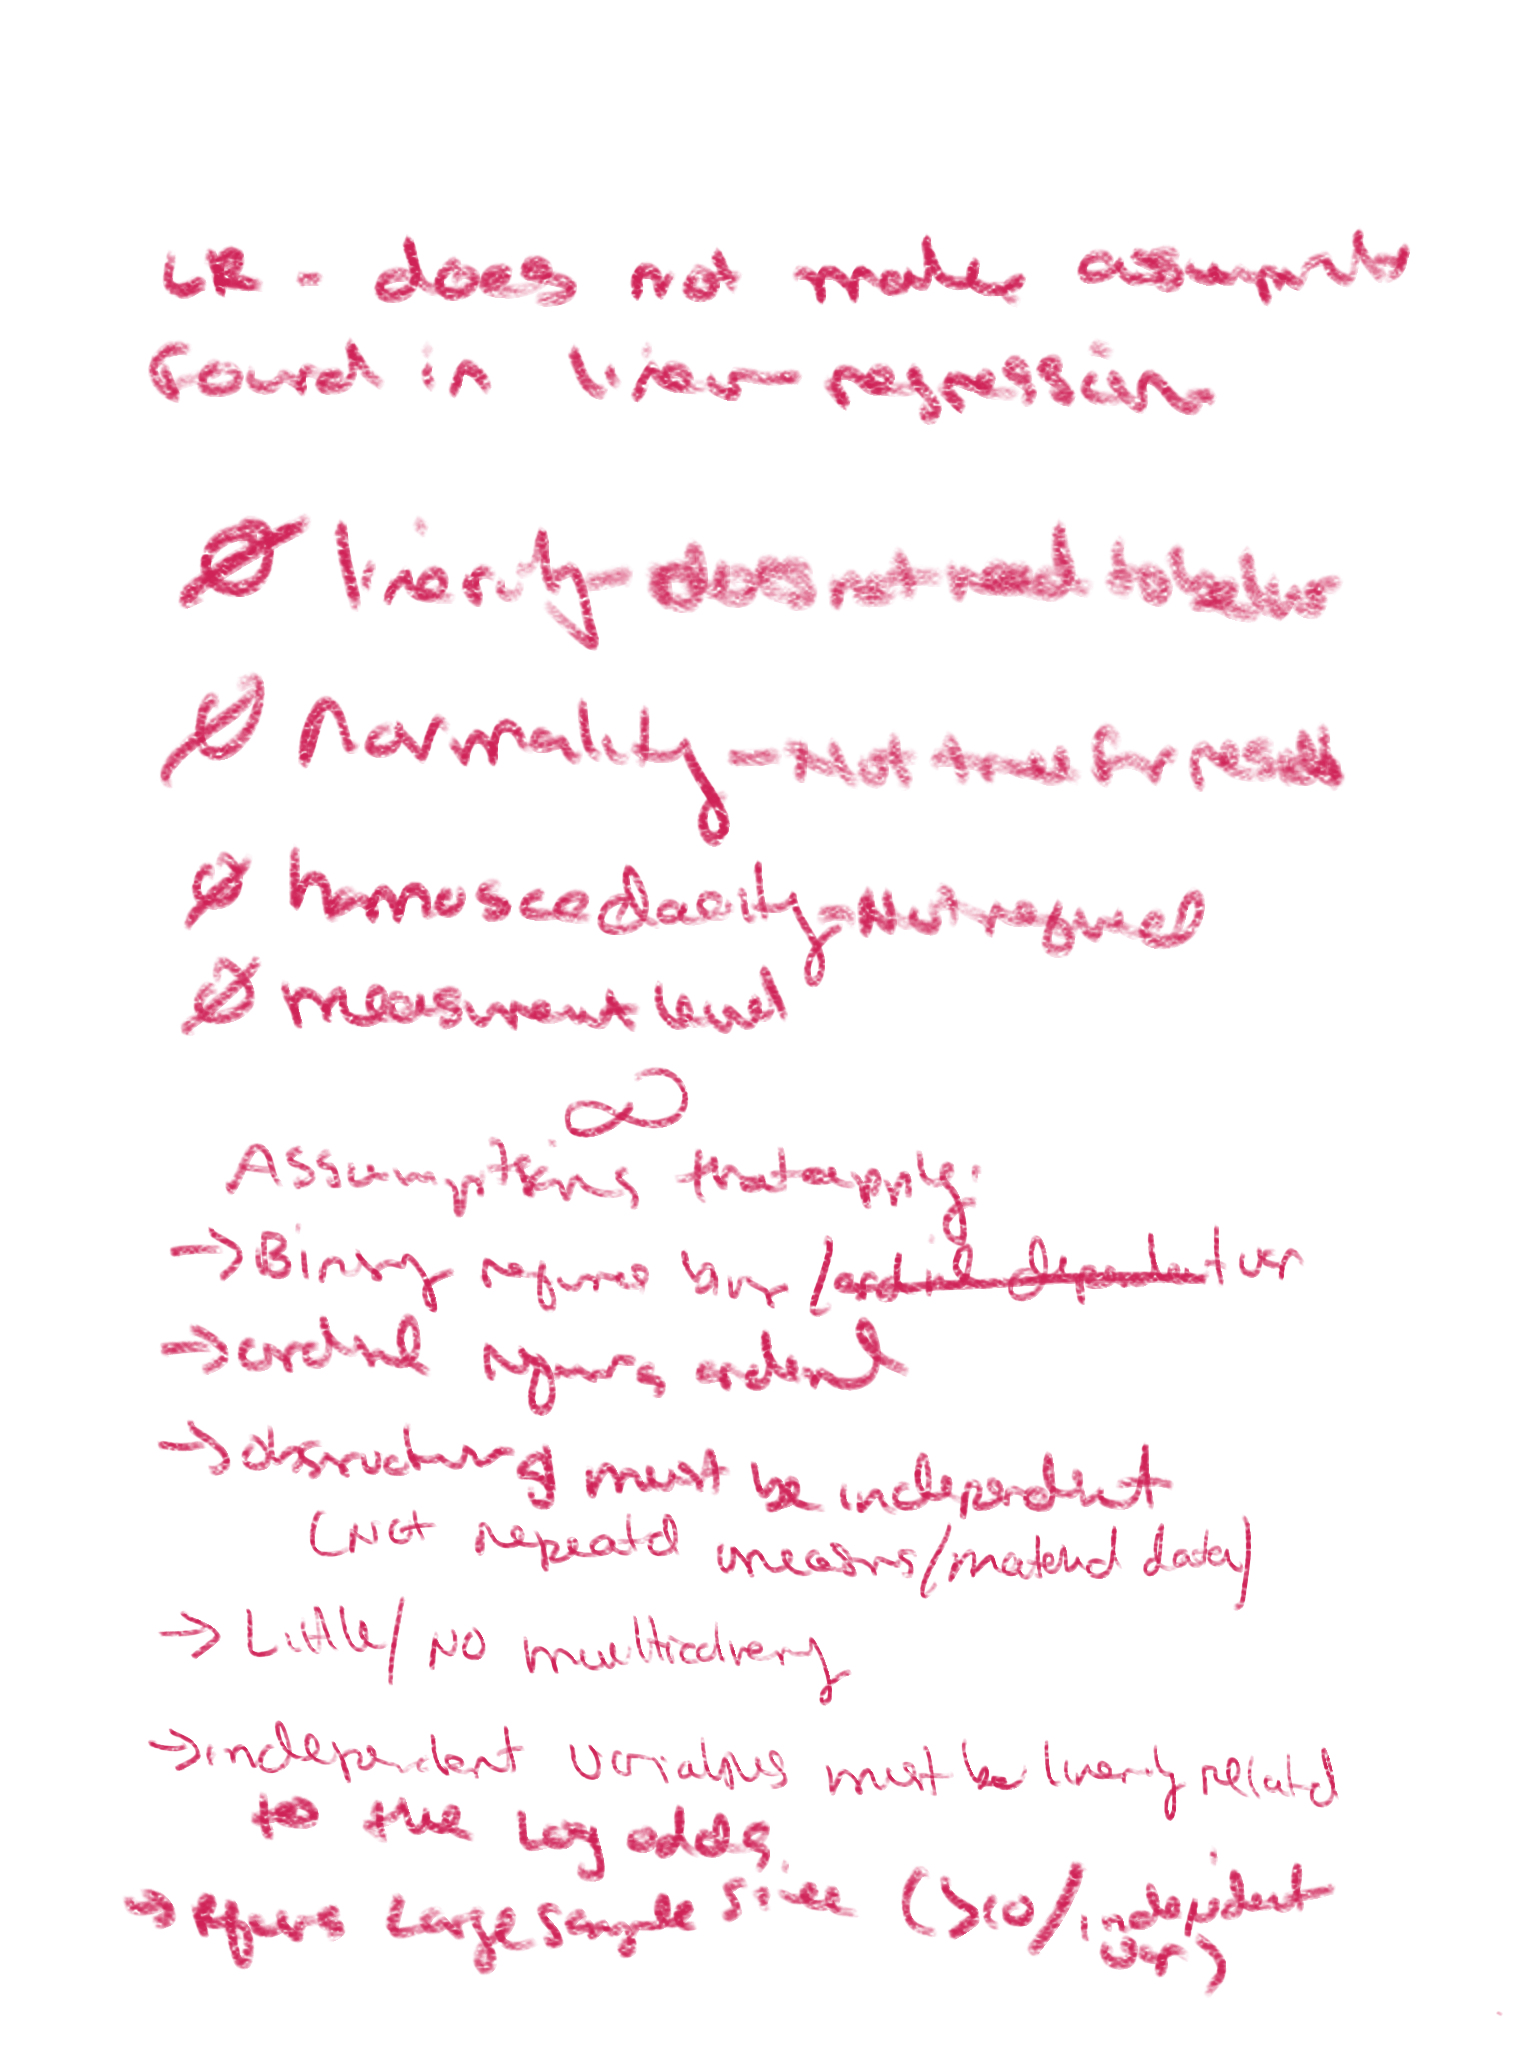 LR - does not make assumpts
found in linear regression
Ø linearity - does not need to be linear
Ø Normality - Not true for resids
Ø homoscedacity - Not required
Ø measurment level
Assumptions that apply:
→ Binary requires binary / ordinal dependent var
→ ordinal requires ordinal
→ must be independent
(Not repeatd measurs/matched data)
→ Little/NO
→ independent variables must be linearly relatd
to the log odds.
→ requires Large sample size (>10/independent
var)